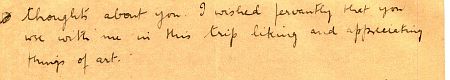 thoughts about you. I wished fervantly that you
were with me in this trip liking and appreciating
things of art.